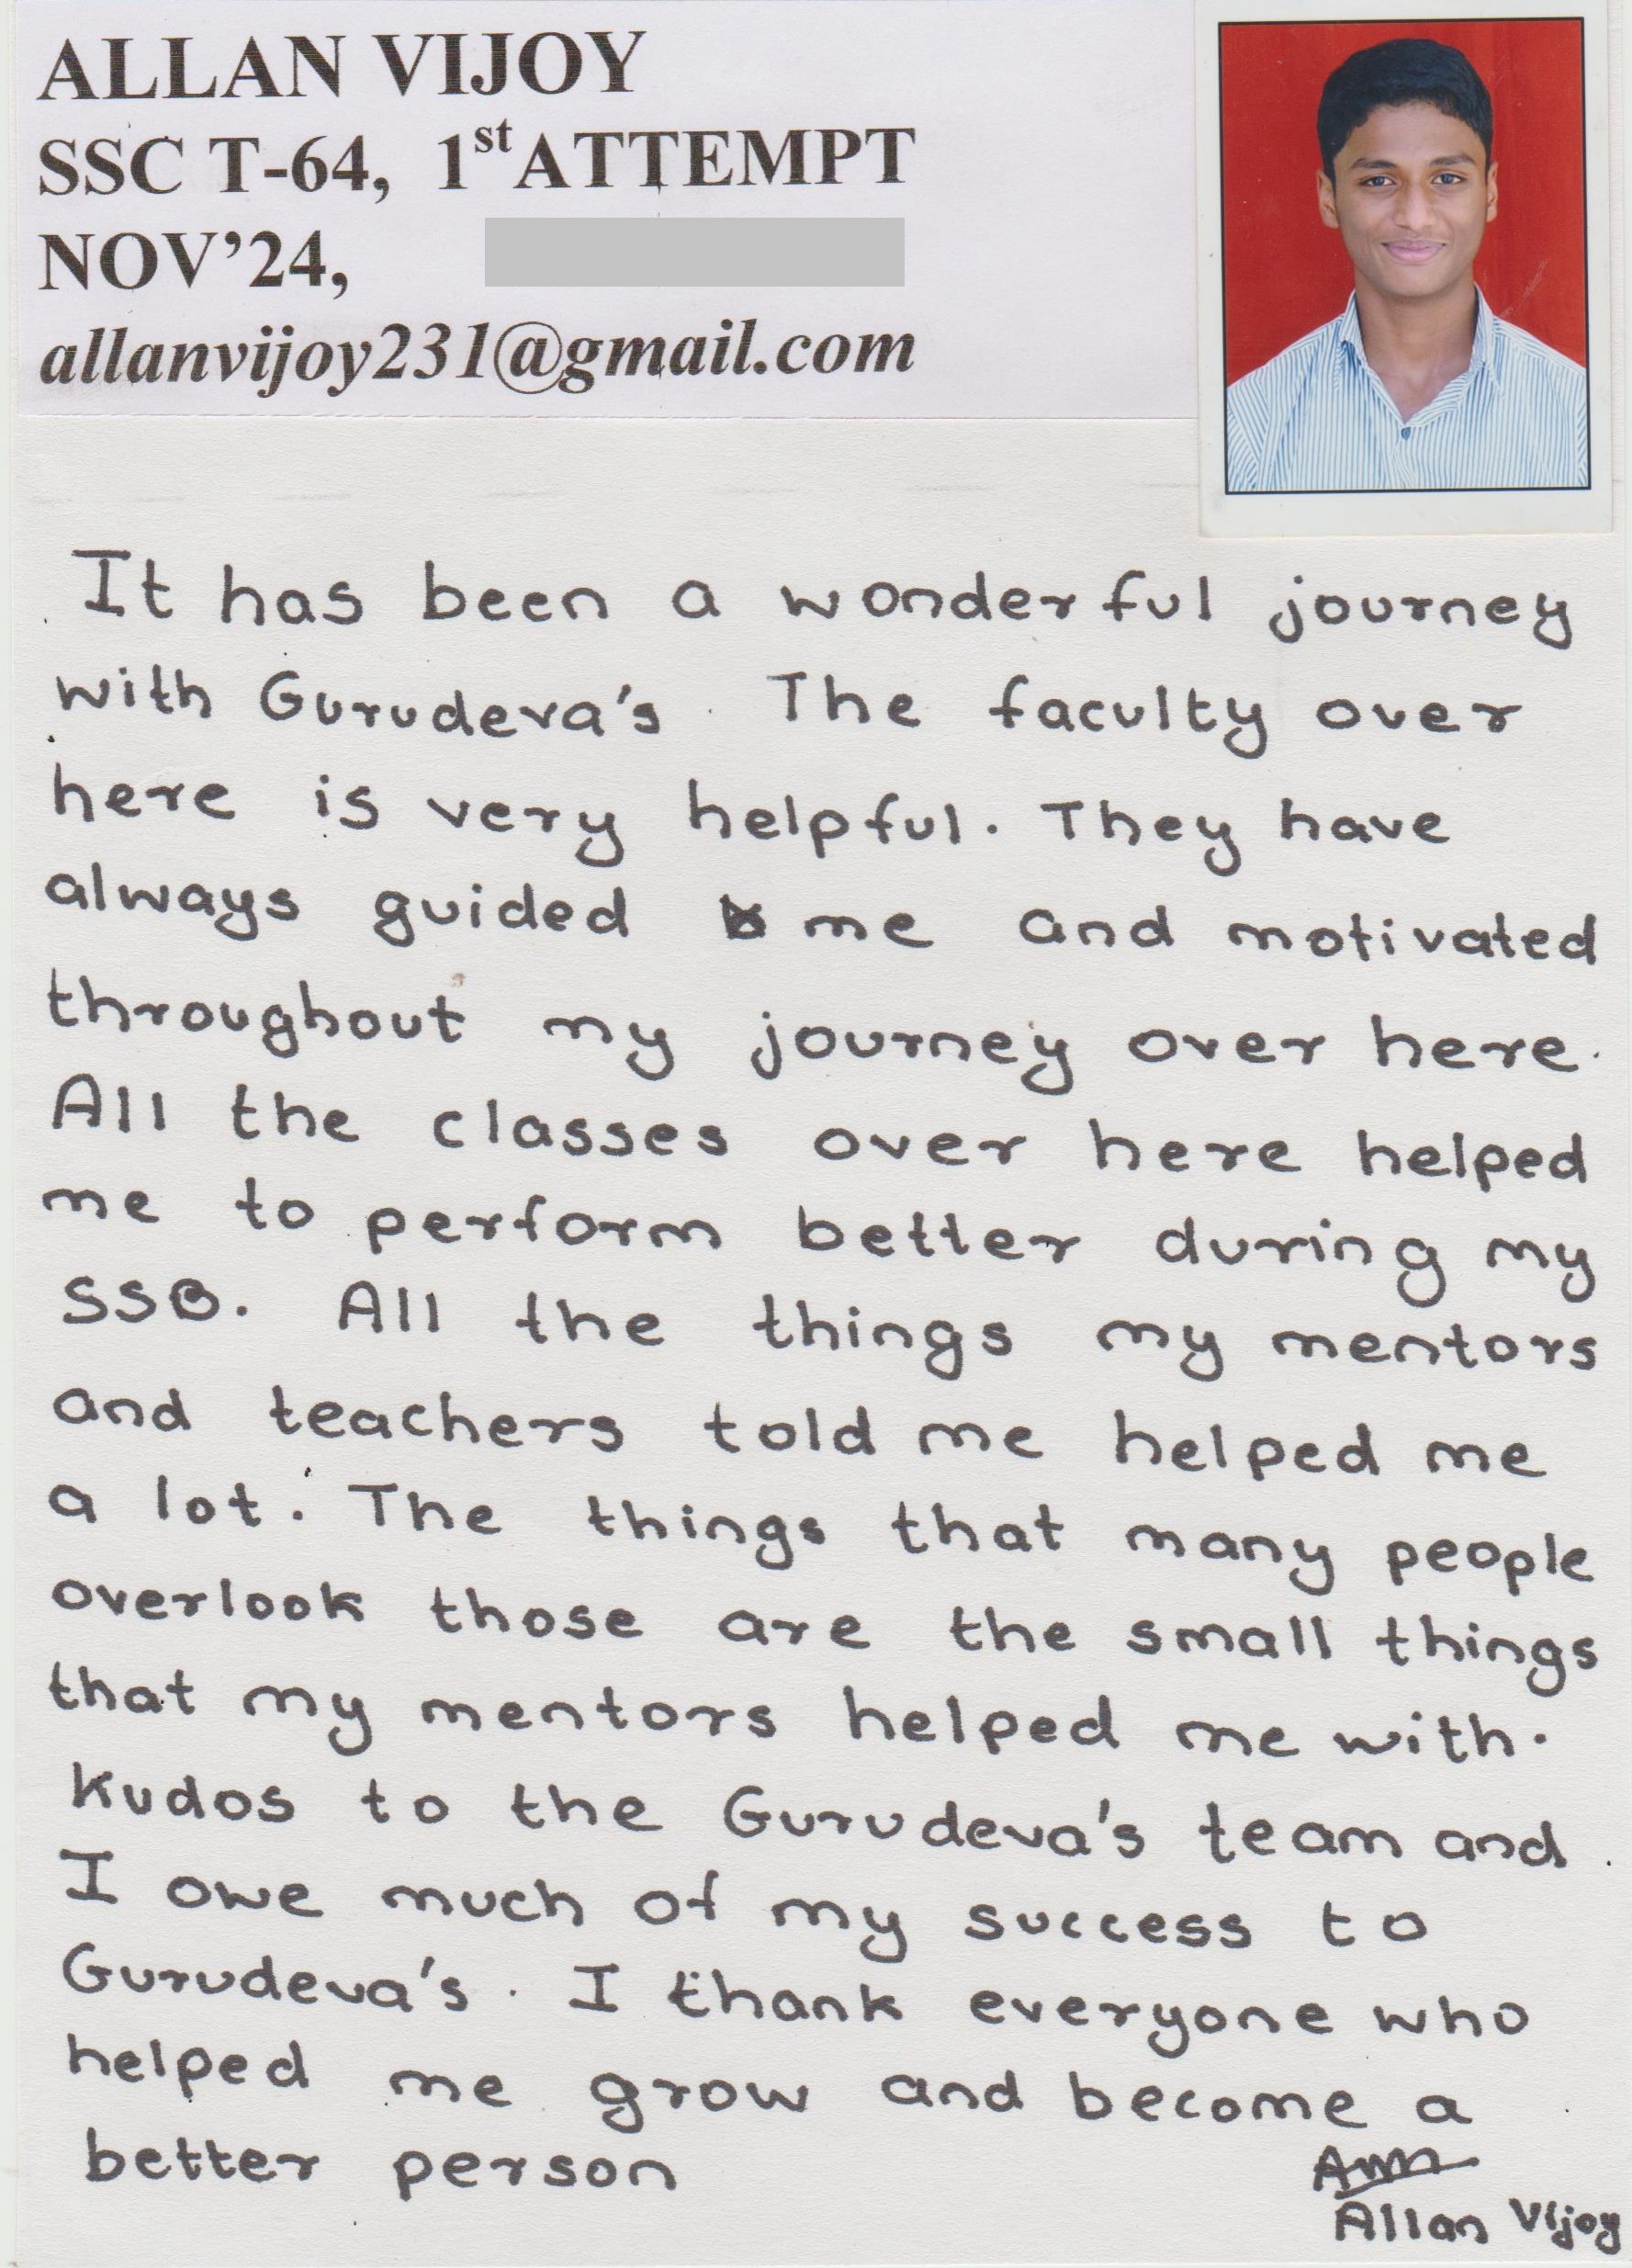 ALLAN VIJOY
SSC T-64, 1st ATTEMPT
NOV'24,
allanvijoy231@gmail.com
It has been a wonderful journey
with Gurudeva's. The faculty over
here is very helpful. They have
always guided me and motivated
throughout my journey over here.
All the classes over here helped
me to perform better during my
SSB. All the things my mentors
and teachers told me helped me
a lot. The things that many people
overlook those are the small things
that my mentors helped me with.
Kudos to the Gurudeva's team and
I owe much of my success to
Gurudeva's. I thank everyone who
helped me grow and become a
better person
Allan Vijoy